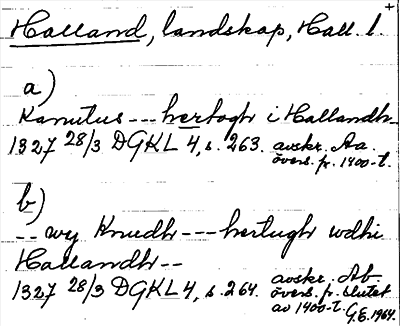 Halland, landskap, Hall. l.
a)
Kanutus --- hertogh i Hallandh
1327 28/3 DGKL 4, s. 263. avskr. Aa.
övers. fr. 1400-t.
b)
-- wy Knudh --- hertugh udhi
Hallandh --
1327 28/3 DGKL 4, s. 264. avskr. Ab
övers. fr. slutet
av 1400-t. G.E. 1964.